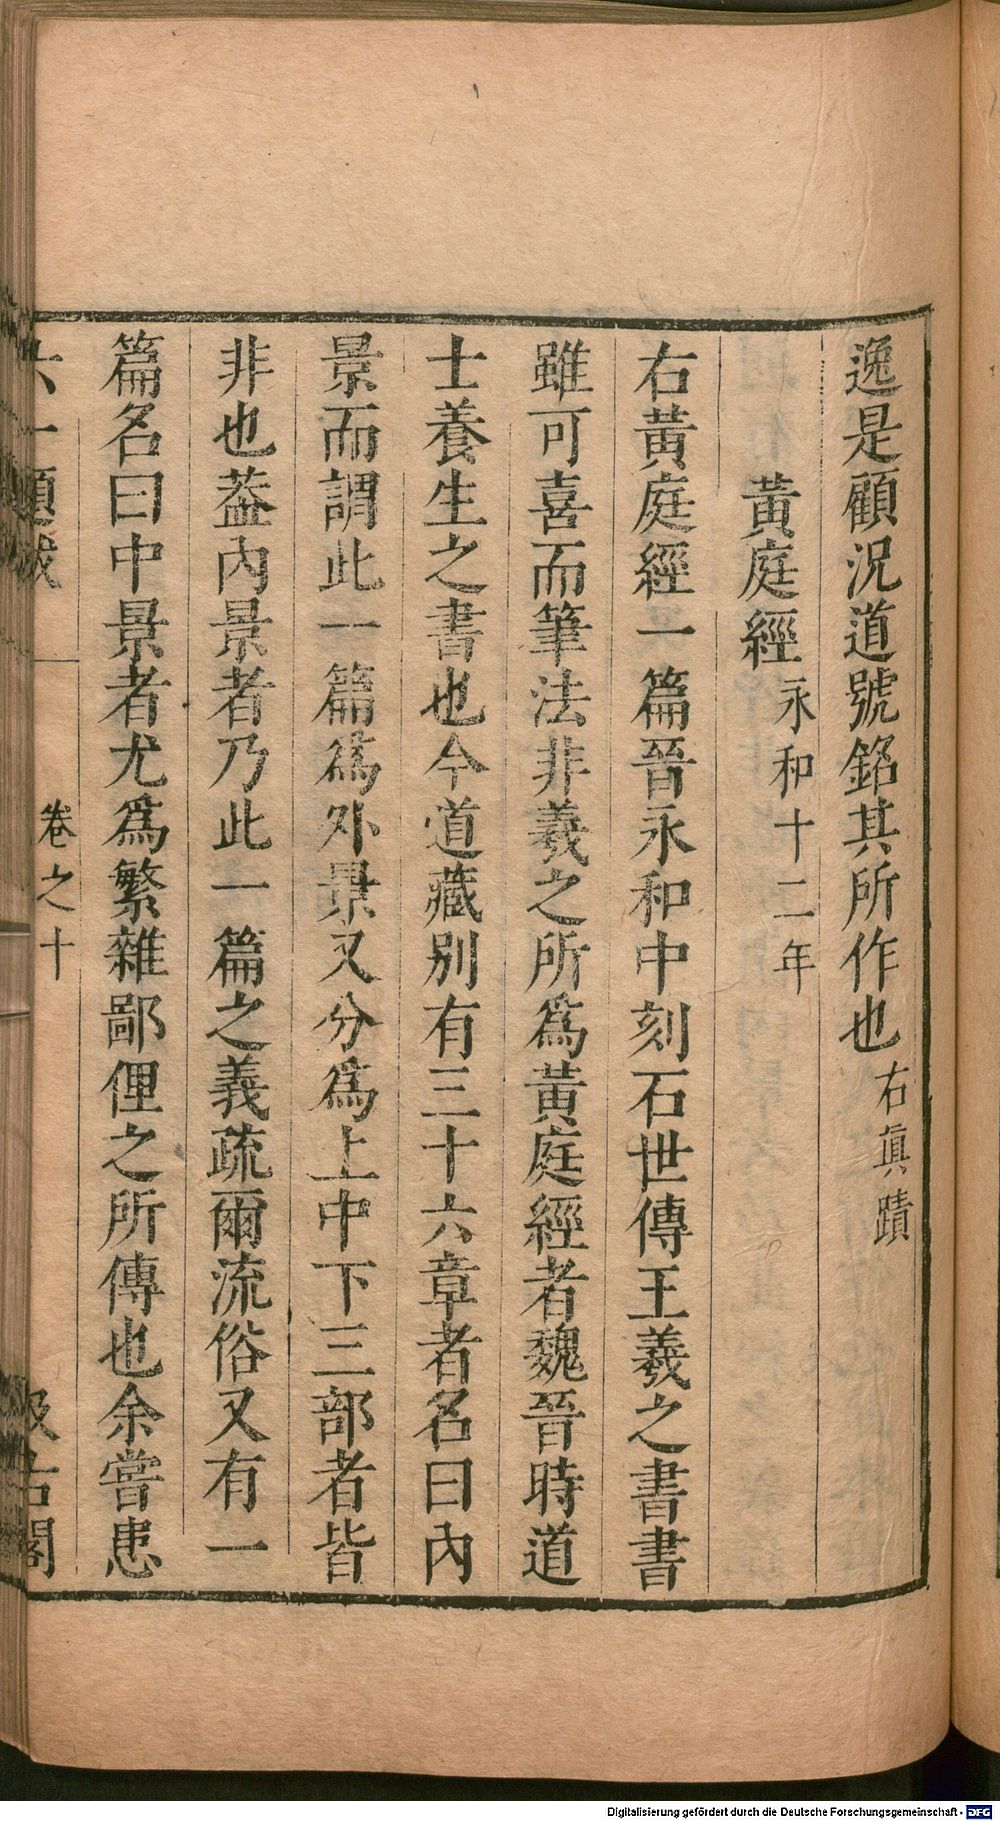 逸是顧況道號銘其所作也右眞蹟
黃庭經永和十二年
右黃庭經一篇晉永和中刻石世傳王羲之書書
雖可喜而筆法非羲之所爲黃庭經者魏晉時道
士養生之書也今道藏別有三十六章者名曰內
景而謂此一篇爲外景又分爲上中下三部者皆
非也葢內景者乃此一篇之義疏爾流俗又有一
篇名曰中景者尤爲繁雜鄙俚之所傳也余嘗患
六一題跋 卷之十 汲古閣
Digitalisierung gefördert durch die Deutsche Forschungsgemeinschaft - DFG